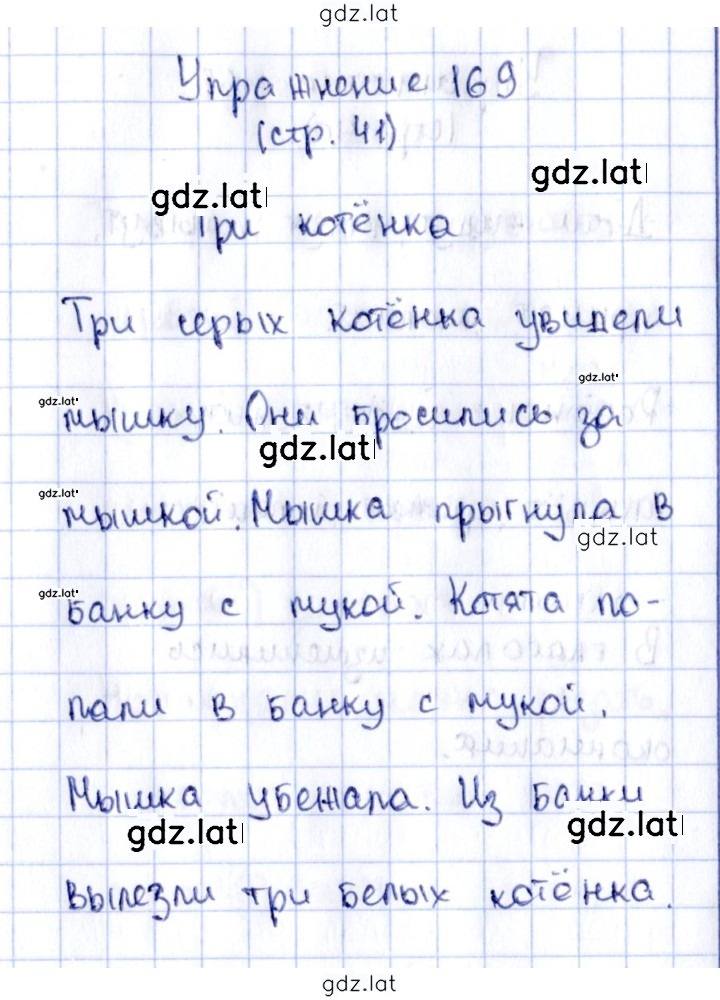 gdz.lat
Упражнение 169
(стр. 41)
gdz.lat
gdz.lat
Три котёнка
Три серых котёнка увидели
gdz.lat
gdz.lat
мышку. Они бросились за
gdz.lat
gdz.lat
мышкой. Мышка прыгнула в
gdz.lat
gdz.lat
банку с мукой. Котята по-
пали в банку с мукой.
Мышка убежала. Из банки
gdz.lat
gdz.lat
вылезли три белых котёнка.
gdz.lat